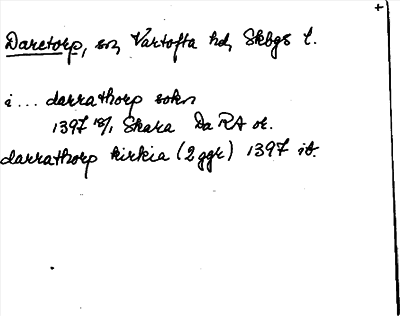 +
Daretorp, sn, Vartofta hd, Skbgs l.
i... darrathorp sokn
1397 18/1 Skara Da RA or.
darrathorp kirkia (2 ggr) 1397 ib.